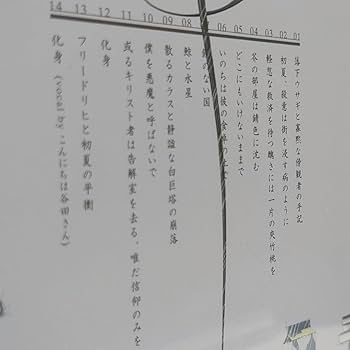 01 落下ウサギと寡黙な傍観者の手記
02 初夏、殺意は街を浸す病のように
03 救済を待つ醜さには一片の夾竹桃を
04 の部屋は錆色に沈む
05 どこにもいけないままで
06 いのちは彼の食卓の
07 のない国
08 鯨と水星
09 散るカラスと静謐な白巨塔の崩落
10 僕を悪魔と呼ばないで
11 或るキリスト者は告解室を去る、唯だ信仰のみを
12 化身
13 フリードリヒと初夏の平衡
14 化身 (vocal by こんにちは谷田さん)